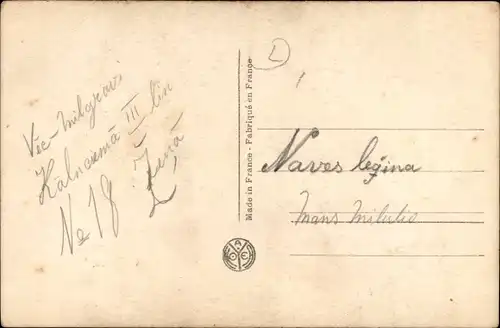 Vec-Milgravi
Kalnciema III lin
№ 18. Ženā
Made in France - Fabriqué en France
Naves leģina
Mans mīlulis